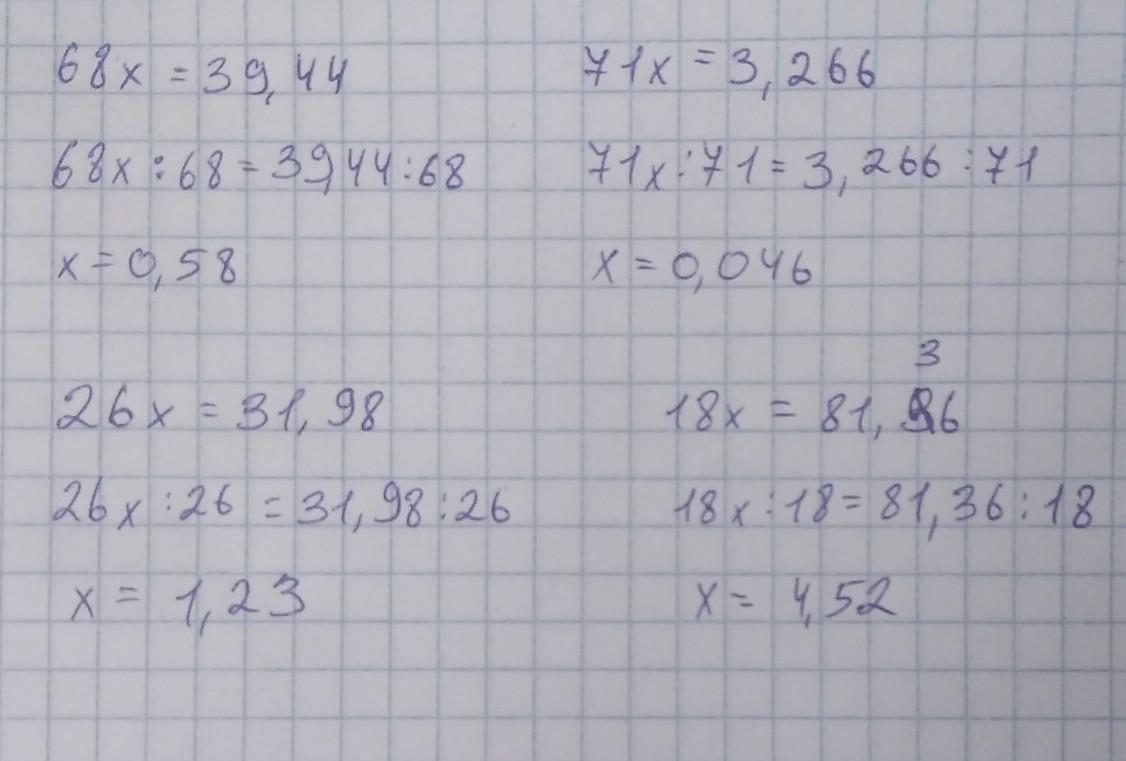 68x = 39,44
68x : 68 = 39,44 : 68
x = 0,58
71x = 3,266
71x : 71 = 3,266 : 71
x = 0,046
26x = 31,98
26x : 26 = 31,98 : 26
x = 1,23
3
18x = 81,36
18x : 18 = 81,36 : 18
x = 4,52